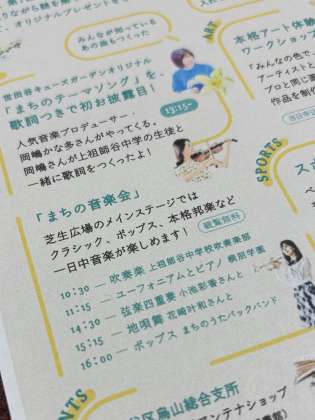 りながら謎を解
て、オリジナルプレゼントを
みんなが知っている
あの曲もつくった
世田谷キューズガーデンオリジナル
「まちのテーマソング」を、
歌詞つきで初お披露目!
13:15〜
人気音楽プロデューサー・
岡嶋かな多さんがやってくる。
岡嶋さんが上祖師谷中学の生徒と
一緒に歌詞をつくったよ!
「まちの音楽会」
芝生広場のメインステージでは
クラシック、ポップス、本格邦楽など
一日中音楽が楽しめます!
観覧無料
10:30 — 吹奏楽 上祖師谷中学校吹奏楽部
11:15 — ユーフォニアムとピアノ 桐朋学園
14:30 — 弦楽四重奏 小池彩香さんと
15:15 — 地唄舞 花崎叶和さんと
16:00 — ポップス まちのうたバックバンド
ART
本格アート体験
ワークショップ
「みんなの色で、
アーティストと
プロと同じ画
作品を制作
SPORTS
スポ
NTS
区烏山総合支所
ンテナショップ